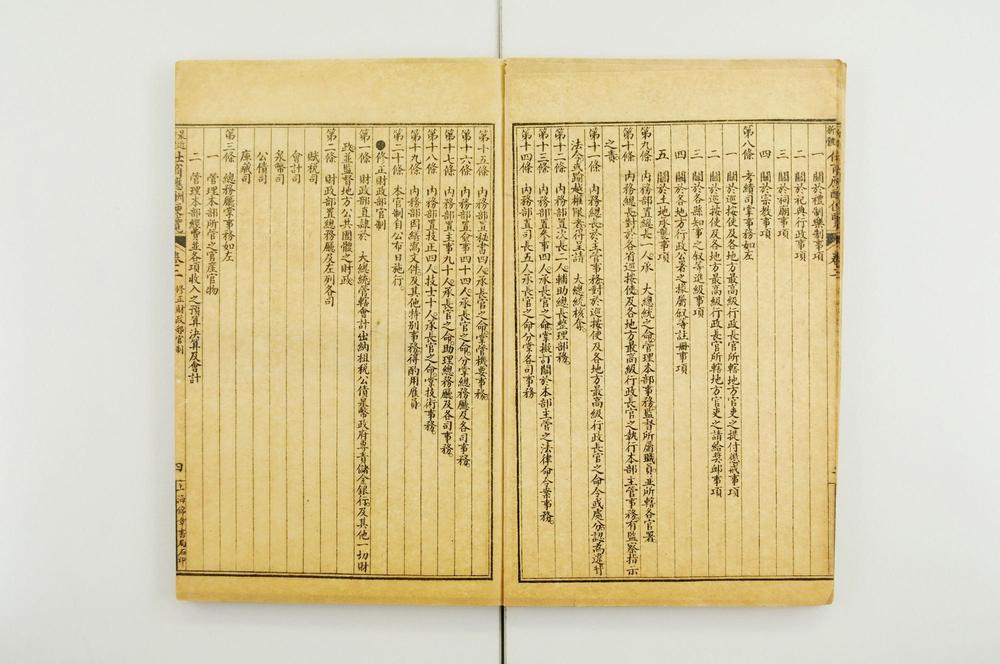 一 關於禮制樂制事項
二 關於祀典行政事項
三 關於祠廟事項
四 關於宗教事項
第八條 考績司掌事務如左
一 關於巡按使及各地方最高級行政長官所轄地方官吏之提付懲戒事項
二 關於巡按使及各地方最高級行政長官所轄地方官吏之請給獎卹事項
三 關於各縣知事之敘等進級事項
四 關於各地方行政公署之掾屬敘等註冊事項
五 關於土地承襲事項
第九條 內務部置總長一人承 大總統之命管理本部事務監督所屬職員並所轄各官署
第十條 內務總長對於各省巡按使及各地方最高級行政長官之執行本部主管事務有監察指示
之責
第十一條 內務總長於主管事務對於巡按使及各地方最高級行政長官之命令或處分認為違背
法令或踰越權限者得呈請 大總統核奪
第十二條 內務部置次長二人輔助總長整理部務
第十三條 內務部置參事四人承長官之命掌擬訂關於本部主管之法律命令案事務
第十四條 內務部置司長五人承長官之命分掌各司事務
第十五條 內務部置祕書四人承長官之命掌管機要事務
第十六條 內務部置僉事四十四人承長官之命分掌總務廳及各司事務
第十七條 內務部置主事九十人承長官之命助理總務廳及各司事務
第十八條 內務部置技正四人技士十人承長官之命掌技術事務
第十九條 內務部因繕寫文件及其他特別事務得酌用雇員
第二十條 本官制自公布日施行
●修正財政部官制
第一條 財政部直隸於 大總統管轄會計出納租稅公債泉幣政府專賣儲金銀行及其他一切財
政並監督地方公共團體之財政
第二條 財政部置總務廳及左列各司
賦稅司
會計司
泉幣司
公債司
庫藏司
第三條 總務廳掌事務如左
一 管理本部所管之官產官物
二 管理本部經費並各項收入之預算決算及會計
卷二 修正財政部官制 四 上海錦章書局石印